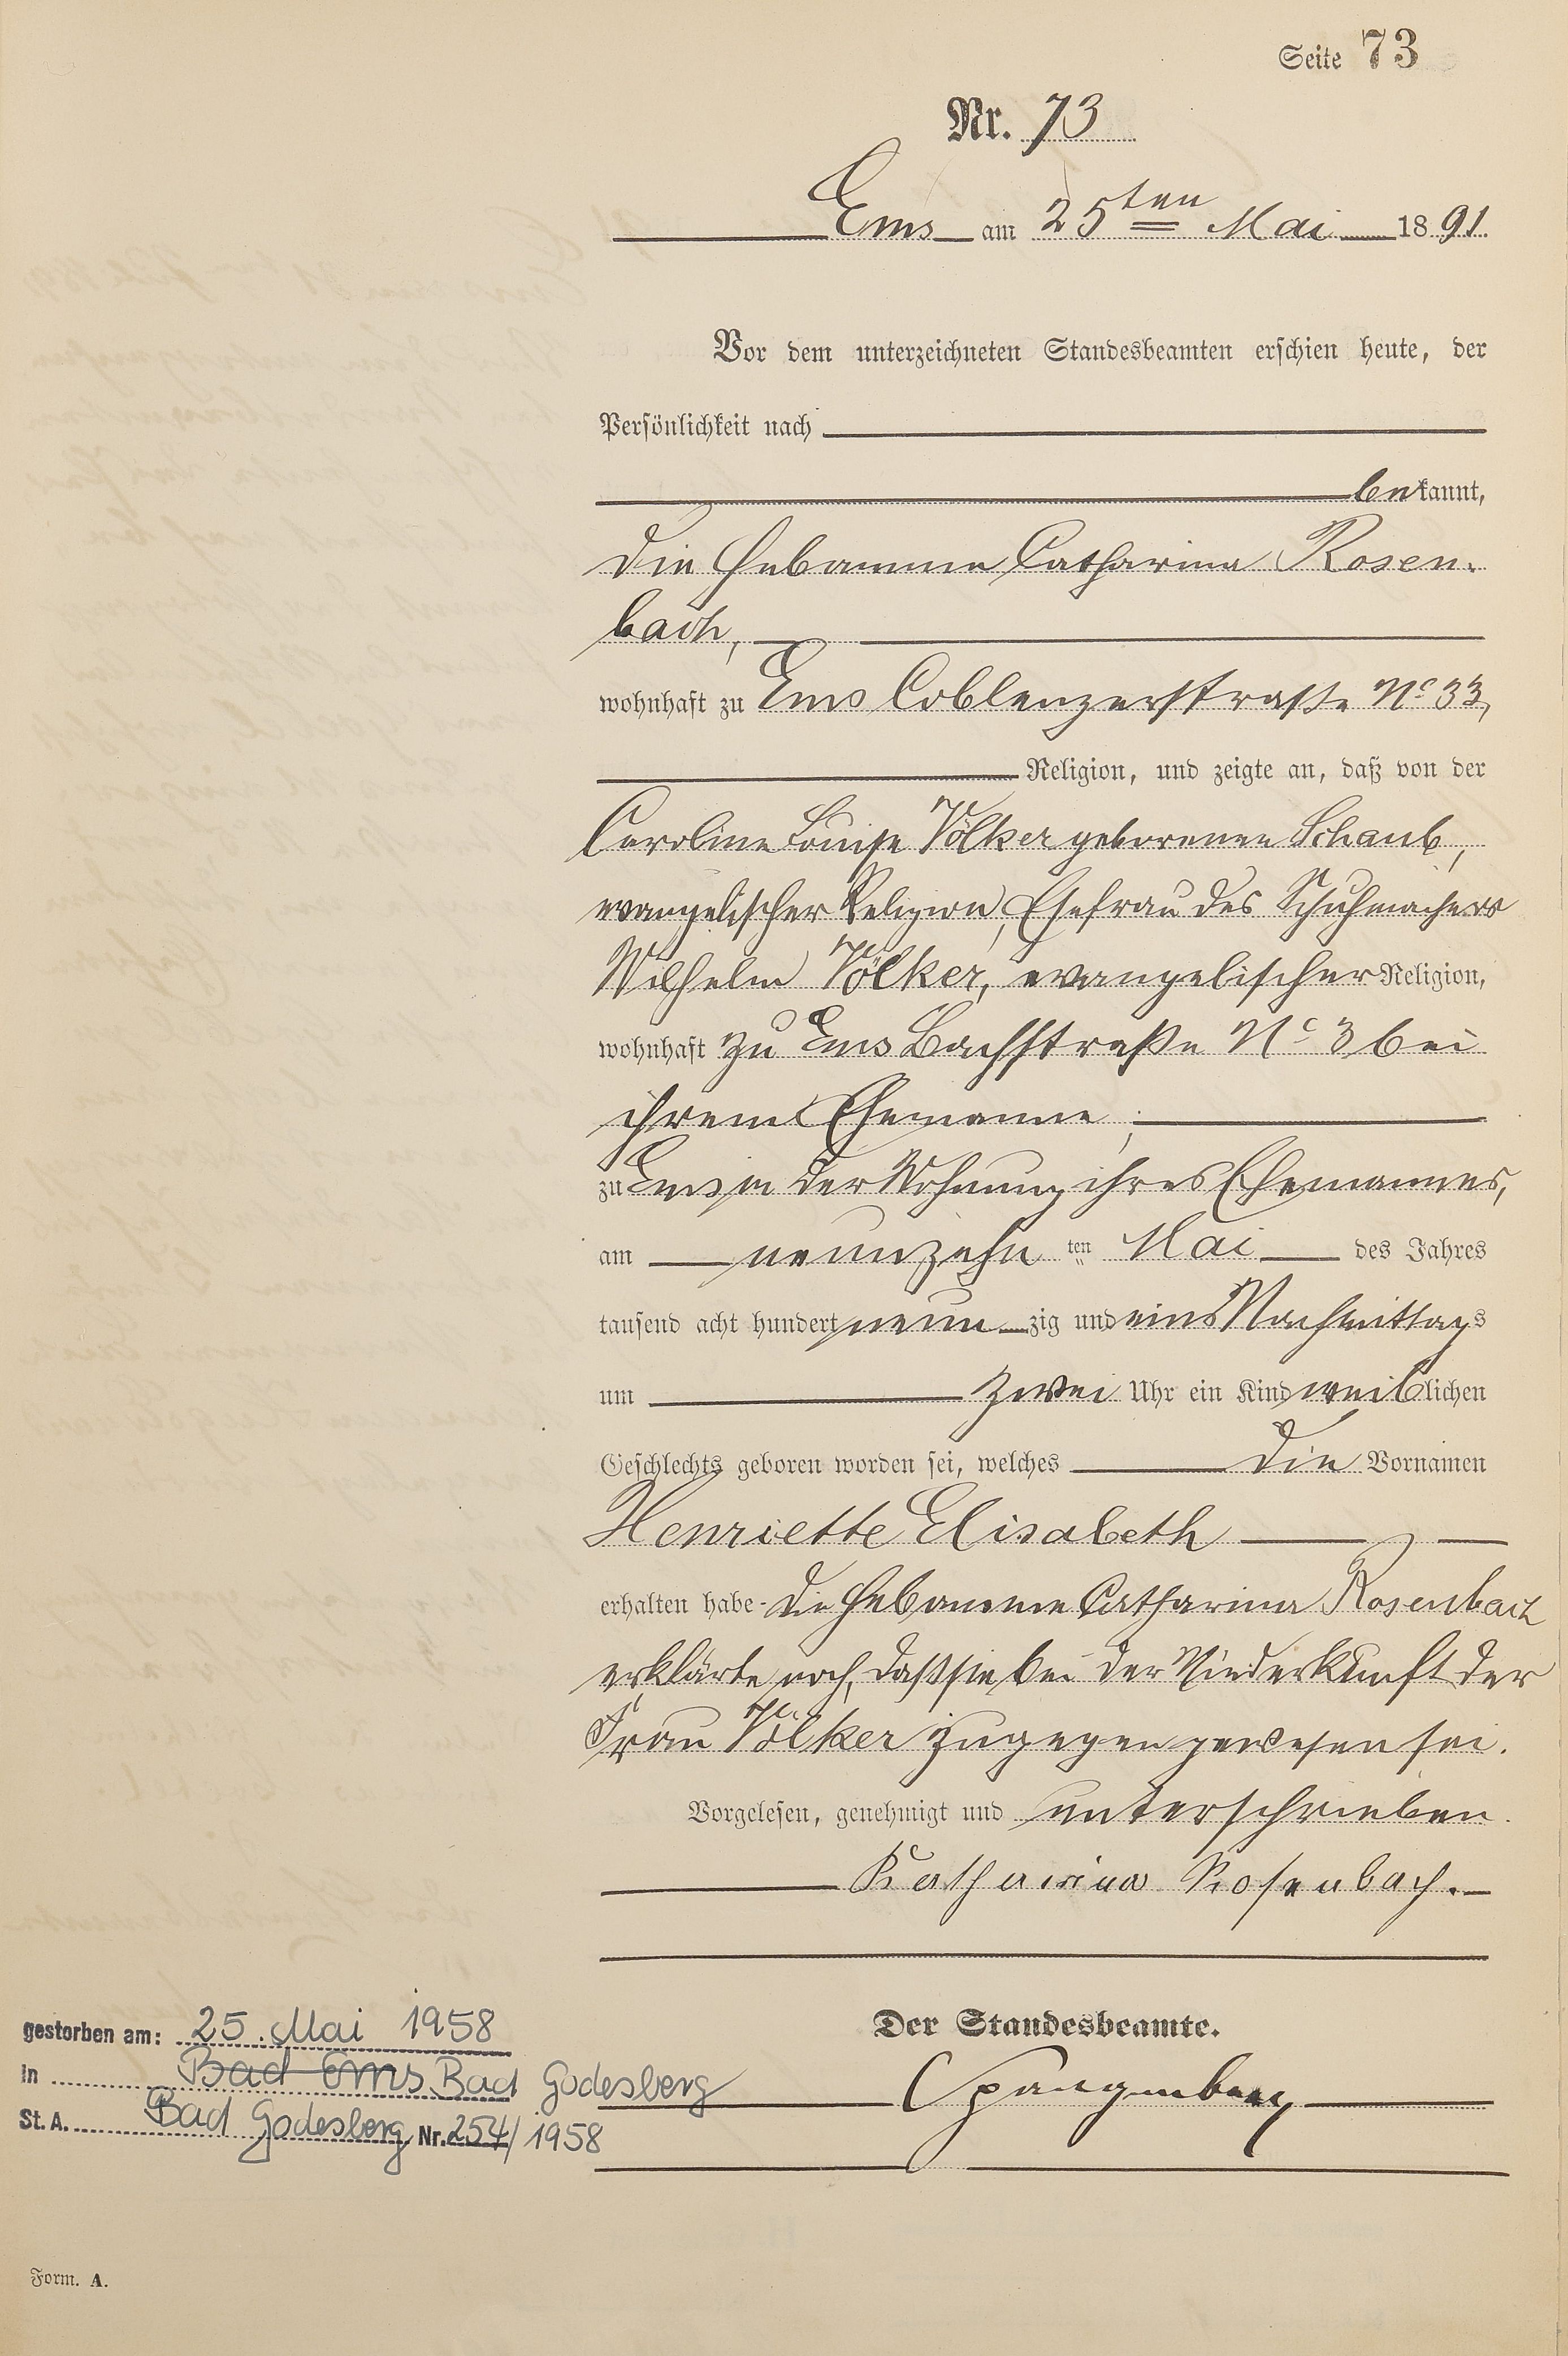 Seite 73
Nr. 73
Ems am 25ten Mai 1891.
Vor dem unterzeichneten Standesbeamten erschien heute, der
Persönlichkeit nach
bekannt,
die Hebamme Catharina Rosen-
bach,
wohnhaft zu Ems Coblenzerstraße No 33,
Religion, und zeigte an, daß von der
Caroline Louise Völker geborenen Schaub,
evangelischer Religion, Ehefrau des Schuhmachers
Wilhelm Völker, evangelischer Religion,
wohnhaft zu Ems Bachstraße No 3 bei
ihrem Ehemanne;
zu Ems in der Wohnung ihres Ehemannes,
am neunzehnten Mai des Jahres
tausend acht hundert neunzig und eins Nachmittags
um zwei Uhr ein Kind weiblichen
Geschlechts geboren worden sei, welches die Vornamen
Henriette Elisabeth
erhalten habe. Die Hebamme Catharina Rosenbach
erklärte noch, daß sie bei der Niederkunft der
Frau Völker zugegen gewesen sei.
Vorgelesen, genehmigt und unterschrieben.
Katharina Rosenbach.
Der Standesbeamte.
Spangenberg
gestorben am: 25. Mai 1958
in Bad Ems Bad Godesberg
St. A. Bad Godesberg Nr. 254/1958
Form. A.